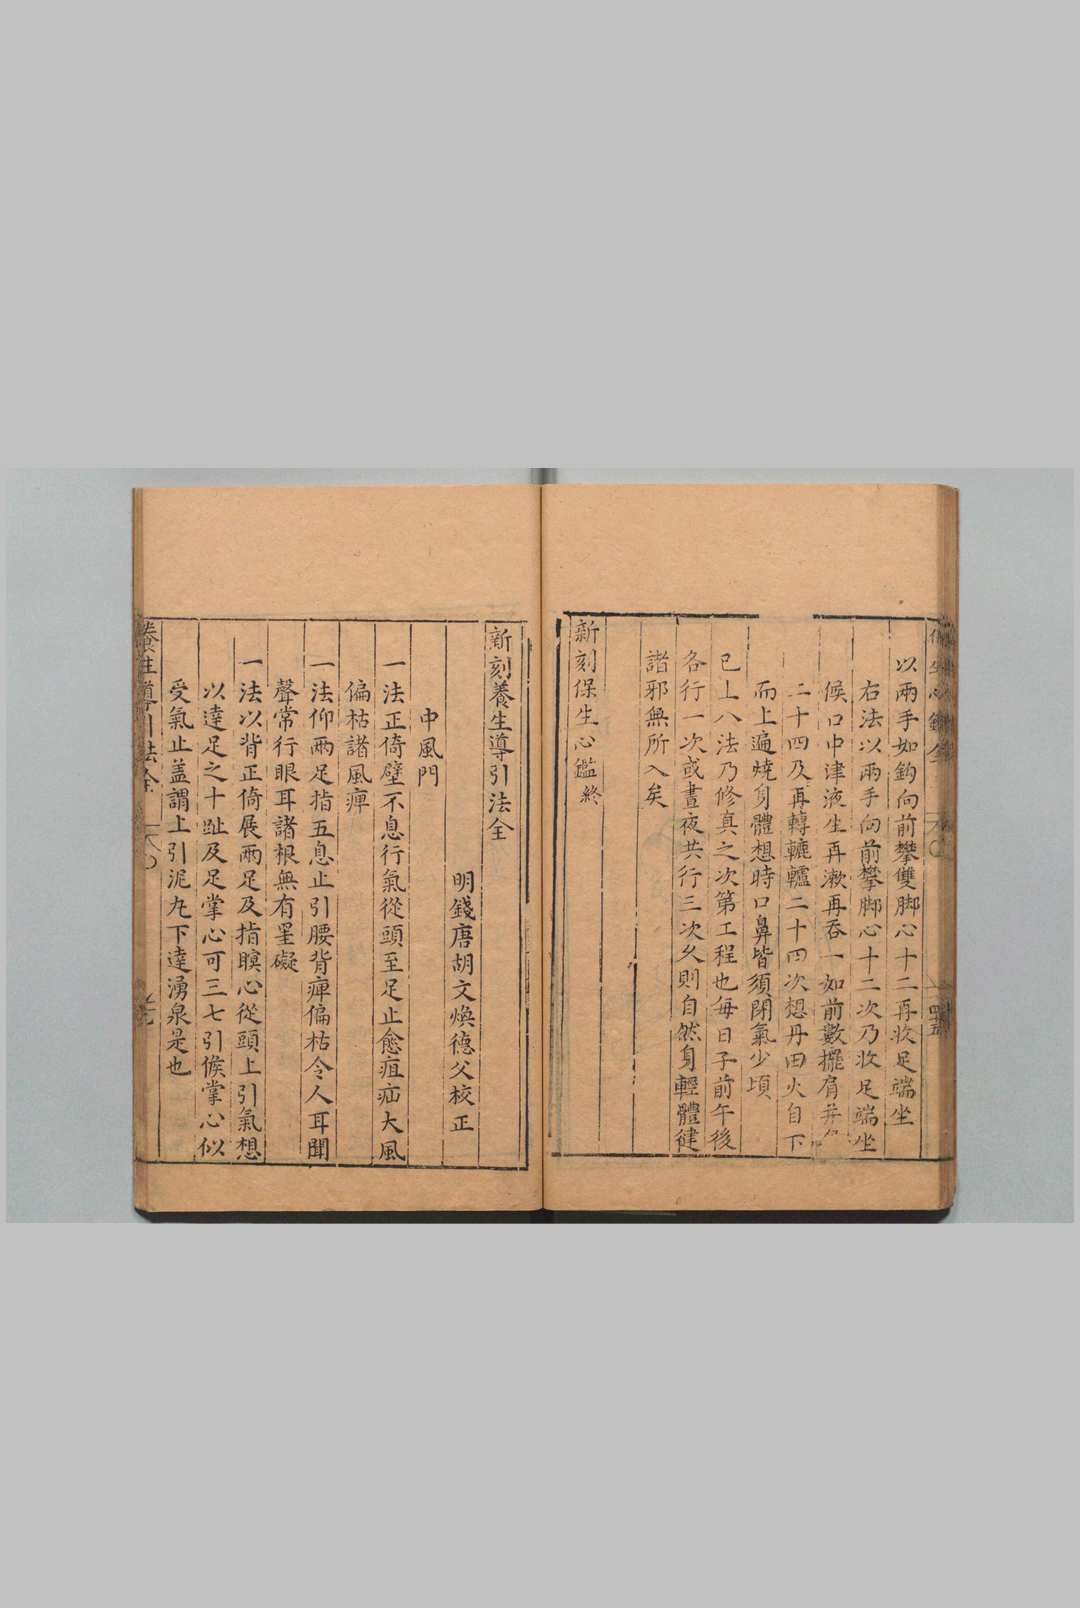 以兩手如鈎向前攀雙脚心十二再收足端坐
右法以兩手向前攀脚心十二次乃收足端坐
候口中津液生再漱再吞一如前數擺肩并
二十四及再轉轆轤二十四次想丹田火自下
而上遍燒身體想時口鼻皆須閉氣少頃
已上八法乃修真之次第工程也每日子前午後
各行一次或晝夜共行三次久則自然身輕體健
諸邪無所入矣
新刻保生心鑑終
新刻養生導引法全
明錢唐胡文煥德父校正
中風門
一法正倚壁不息行氣從頭至足止愈疽疝大風
偏枯諸風痺
一法仰兩足指五息止引腰背痺偏枯令人耳聞
聲常行眼耳諸根無有罣礙
一法以背正倚展兩足及指瞑心從頭上引氣想
以達足之十趾及足掌心可三七引候掌心似
受氣止蓋謂上引泥丸下達湧泉是也
養生導引法全